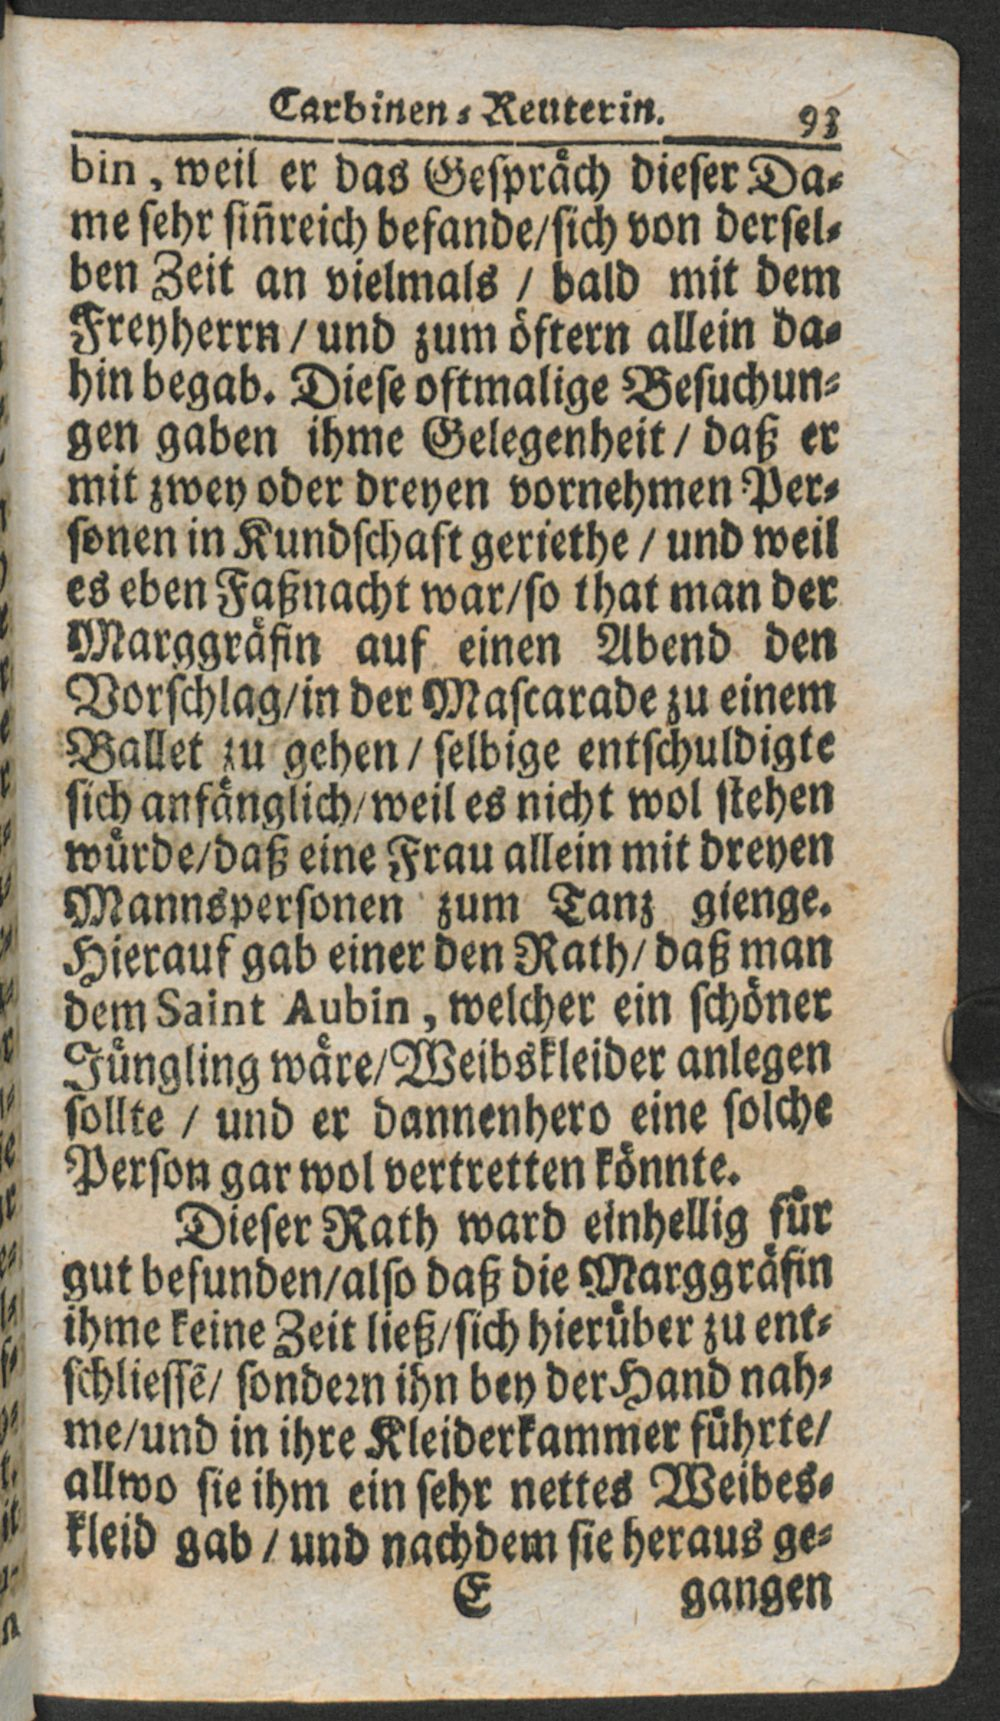 Carbinen⸗Reuterin. 93
bin, weil er das Geſpraͤch dieſer Da⸗
me ſehr ſiñreich befande/ſich von derſel⸗
ben Zeit an vielmals / bald mit dem
Freyherrn / und zum oͤftern allein da⸗
hin begab. Dieſe oftmalige Beſuchun⸗
gen gaben ihme Gelegenheit / daß er
mit zwey oder dreyen vornehmen Per⸗
ſonen in Kundſchaft geriethe / und weil
es eben Faßnacht war/ſo that man der
Marggraͤfin auf einen Abend den
Vorſchlag/in der Maſcarade zu einem
Ballet zu gehen / ſelbige entſchuldigte
ſich anfaͤnglich/weil es nicht wol ſtehen
wuͤrde/daß eine Frau allein mit dreyen
Mannsperſonen zum Tanz gienge.
Hierauf gab einer den Rath/ daß man
dem Saint Aubin, welcher ein ſchoͤner
Juͤngling waͤre/Weibskleider anlegen
ſollte / und er dannenhero eine ſolche
Perſon gar wol vertretten koͤnnte.
Dieſer Rath ward einhellig fuͤr
gut befunden/alſo daß die Marggraͤfin
ihme keine Zeit ließ/ſich hieruͤber zu ent⸗
ſchlieſſẽ/ ſondern ihn bey der Hand nah⸗
me/und in ihre Kleiderkammer fuͤhrte/
allwo ſie ihm ein ſehr nettes Weibes⸗
kleid gab / und nachdem ſie heraus ge⸗
E gangen